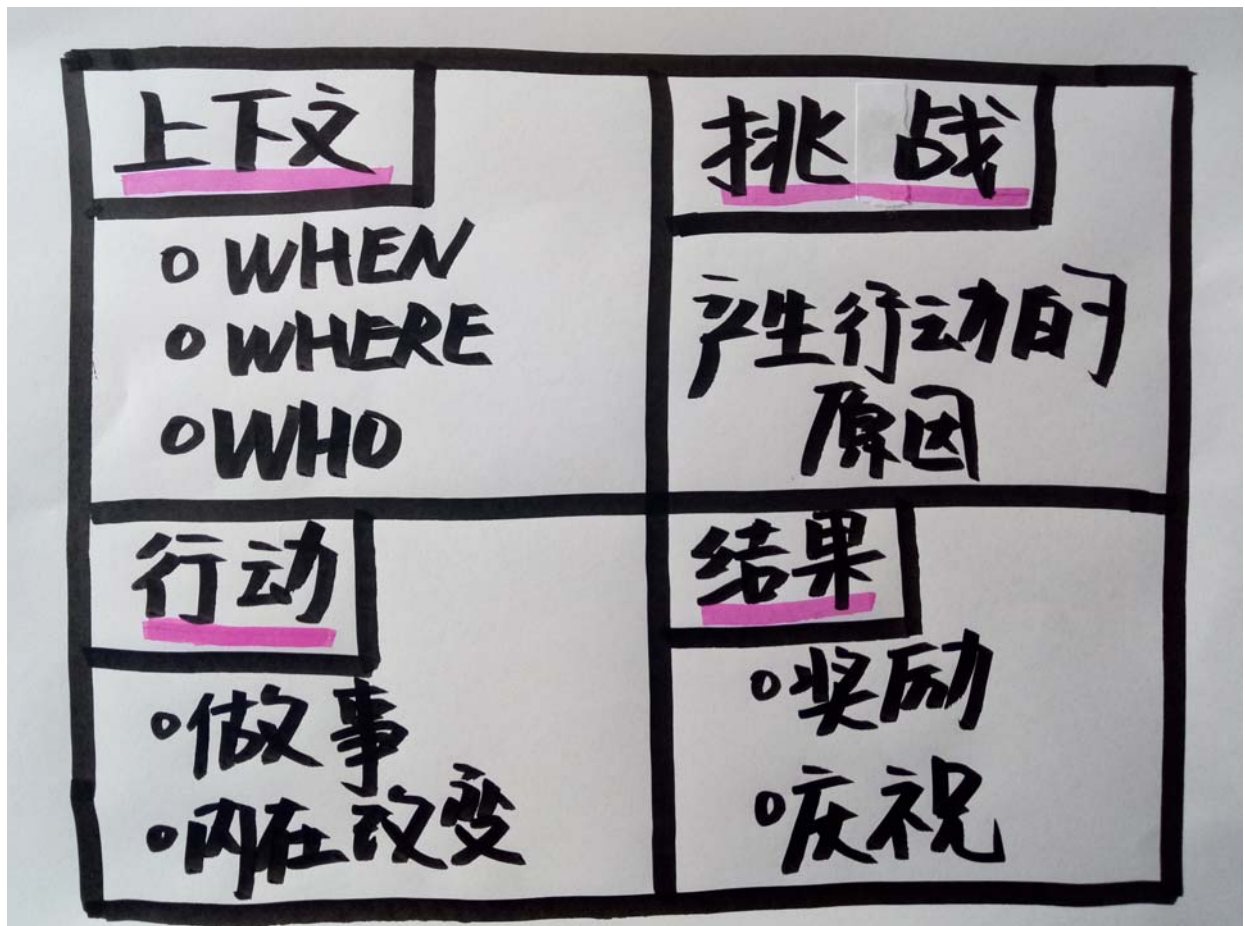 上下文
○ WHEN
○ WHERE
○ WHO
挑战
产生行动的
原因
行动
○ 做事
○ 内在改变
结果
○ 奖励
○ 庆祝